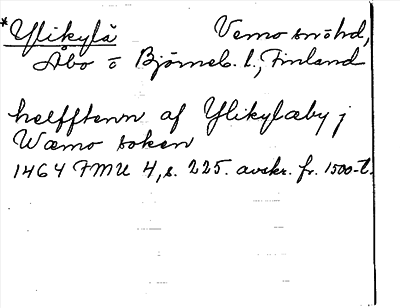 *Ylikylä Vemo sn o hd,
Åbo o Björneb. l., Finland
helfftenn af Ylikylæby j
Wæmo soken
1464 FMU 4, s. 225. avskr. fr. 1500-t.